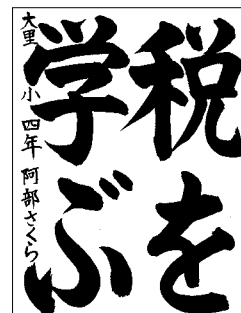 税を
学ぶ
大里小四年阿部さくら